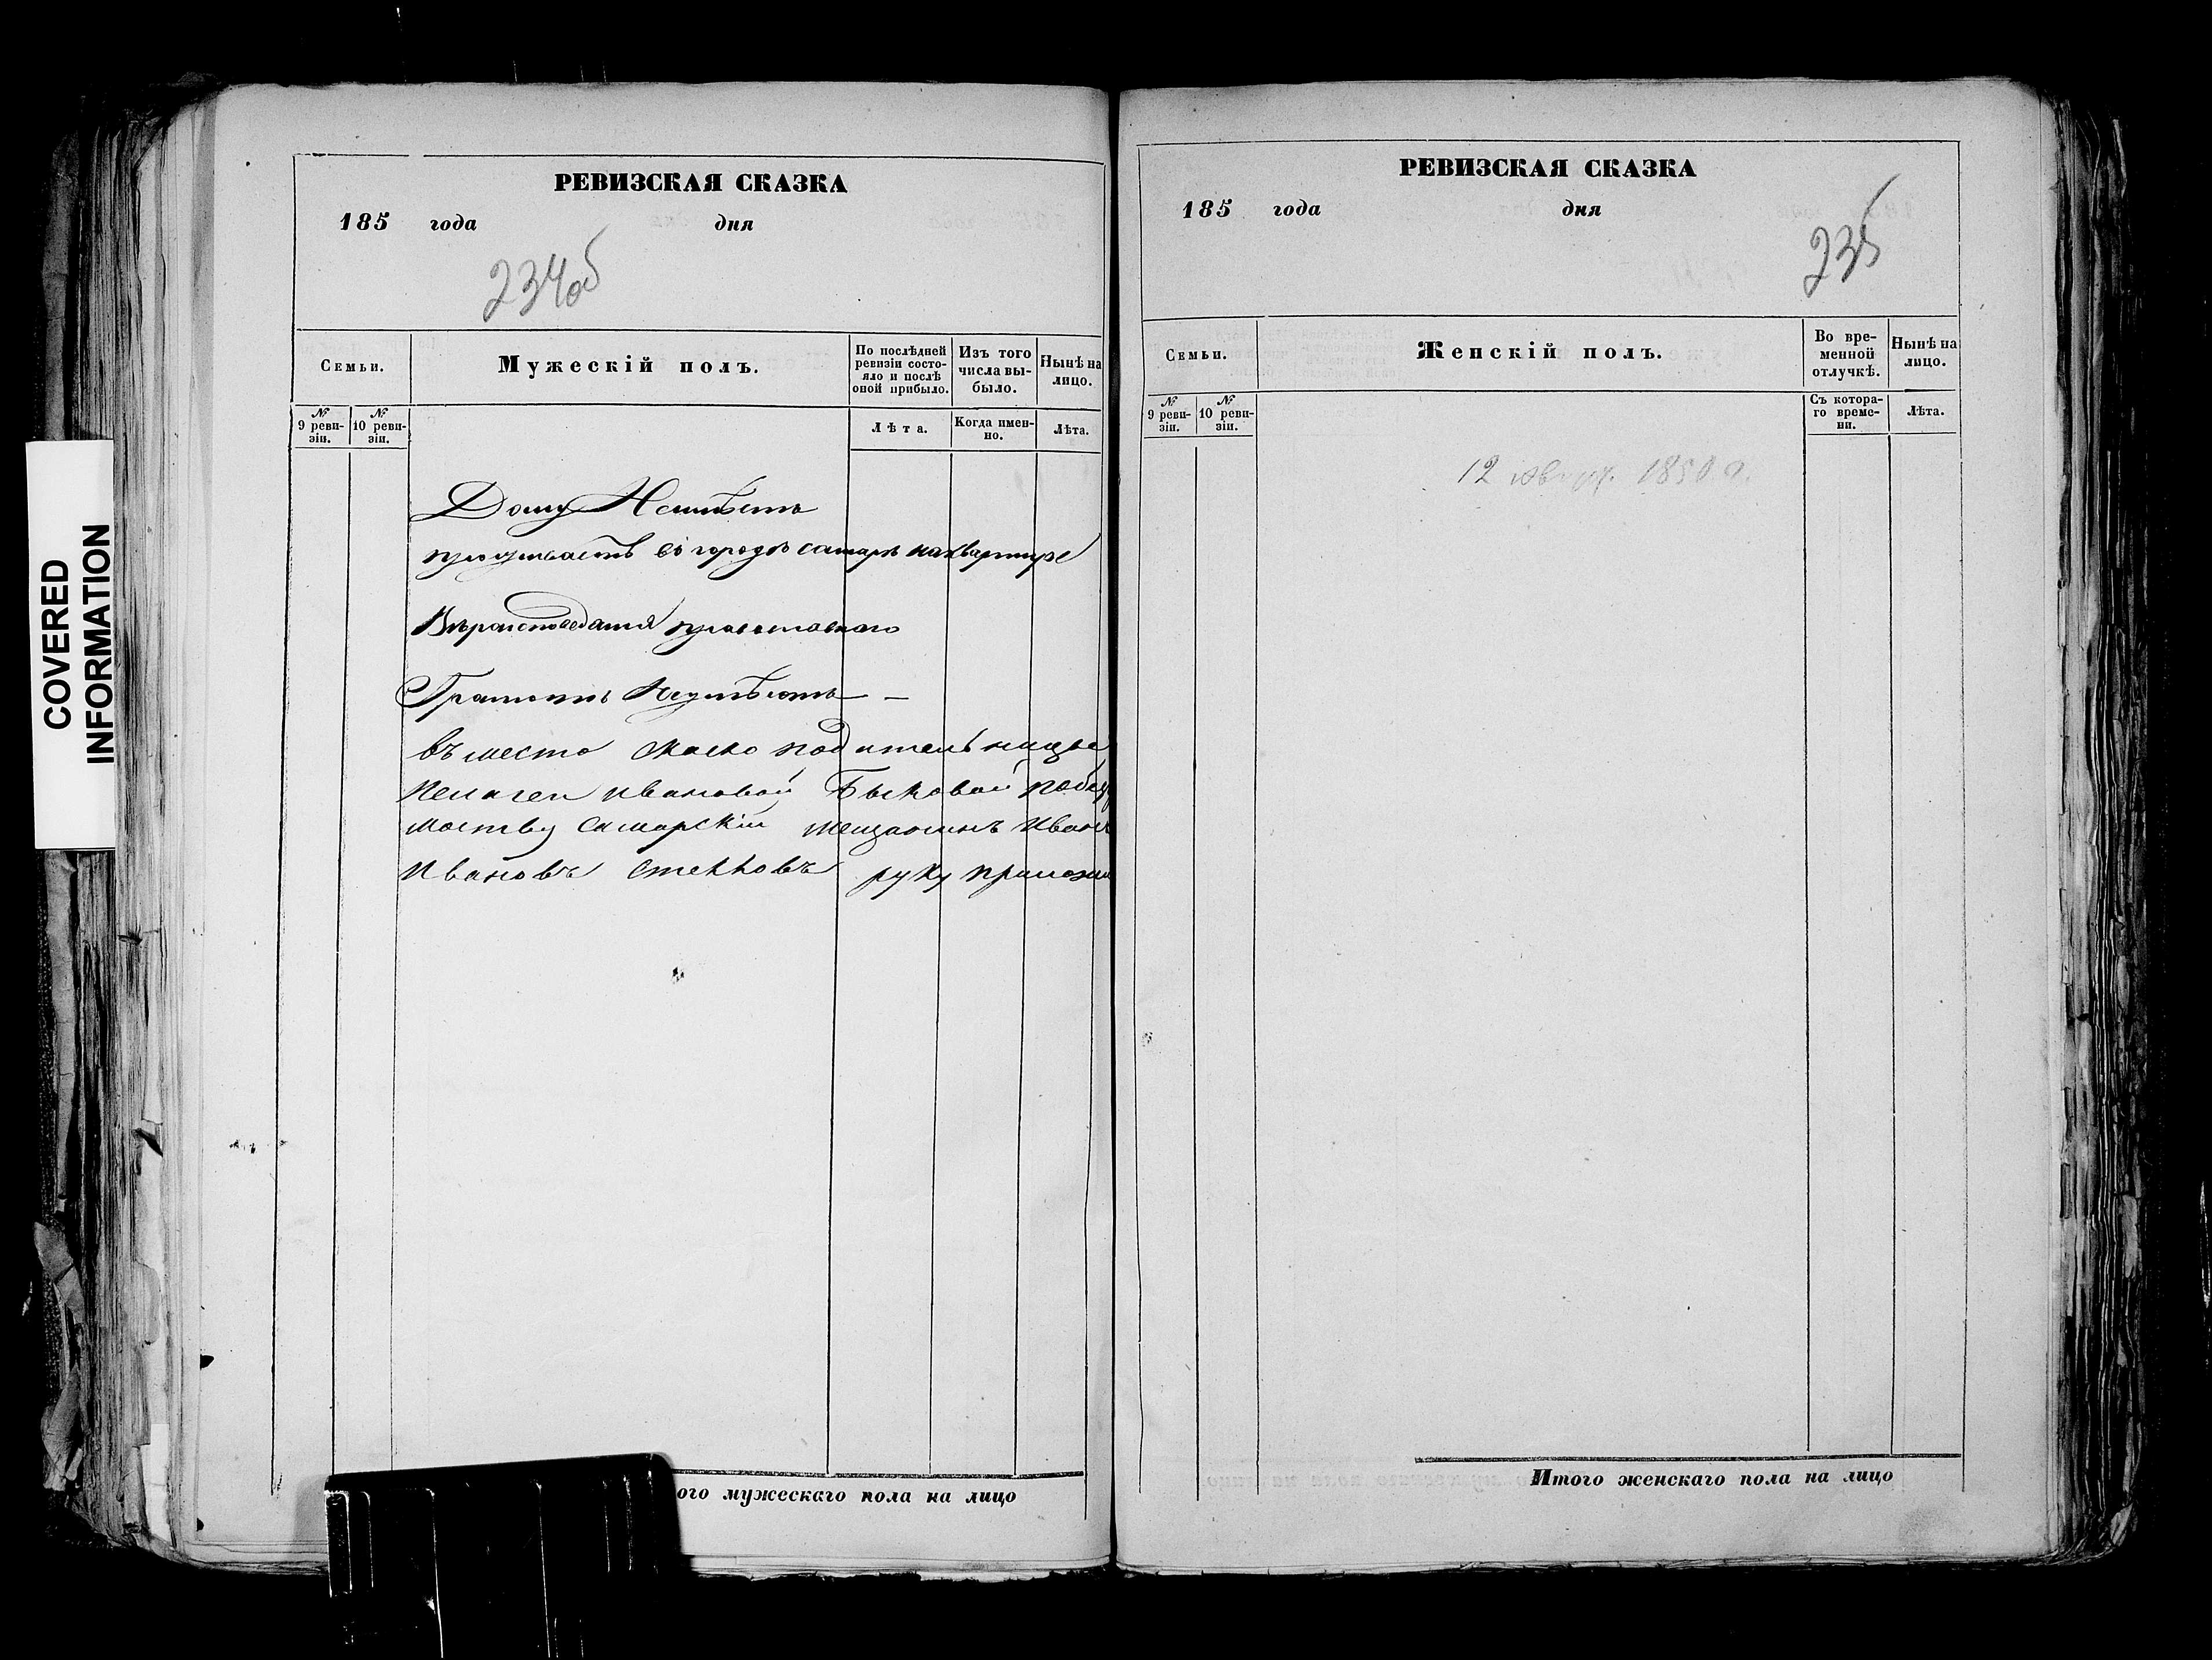 COVERED
INFORMATION
РЕВИЗСКАЯ СКАЗКА
185 года дня
234об
Семьи.
Мужескій полъ.
По послѣдней ревизіи состояло и послѣ оной прибыло.
Изъ того числа выбыло.
Нынѣ на лицо.
№ 9 ревизіи.
№ 10 ревизіи.
Лѣта.
Когда именно.
Лѣта.
Дому Неимѣетъ
проживаетъ въ городѣ самарѣ на квартире
Вѣроисповедания православнаго
Грамотѣ Неумѣетъ —
въместо скаско подительницы
Пелагеи Ивановой Быковой
Самарскій мещанинъ Иванъ
Ивановъ руку приложи
ого мужескаго пола на лицо
РЕВИЗСКАЯ СКАЗКА
185 года дня
235
Семьи.
Женскій полъ.
Во временной отлучкѣ.
Нынѣ на лицо.
№ 9 ревизіи.
№ 10 ревизіи.
Съ котораго времени.
Лѣта.
12 1850 г.
Итого женскаго пола на лицо